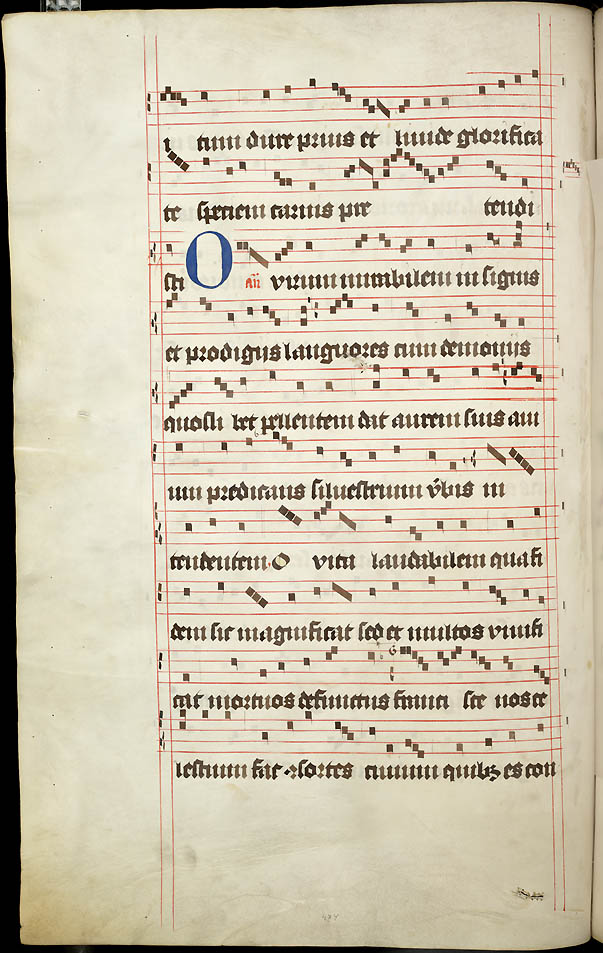 i cum dure prius et liuide glorifica
te speciem carnis pre tendi
sti O añ virum mirabilem in signis
et prodigijs languores cum demonijs
quosli bet pellentem dat aurem suis aui
um predicans siluestrium v̄bis in
tendentem. O vita laudabilem quasi
dem sic magnificat sed et multos viuifi
cat mortuos defunctus franci sce nos ce
lestium fac ꝯsortes ciuium quibꝫ es con